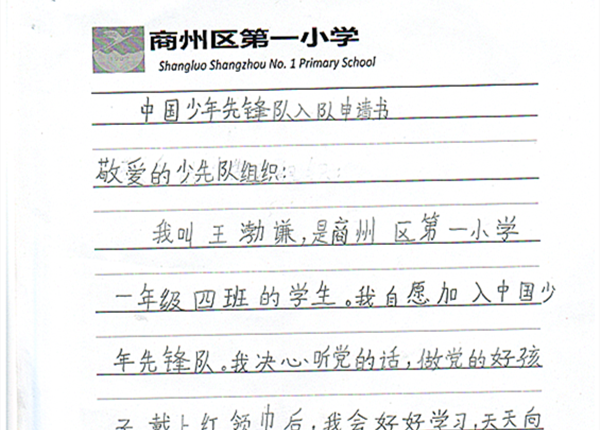 商州区第一小学
Shangluo Shangzhou No. 1 Primary School
中国少年先锋队入队申请书
敬爱的少先队组织:
我叫王渤谦,是商州区第一小学
一年级四班的学生。我自愿加入中国少
年先锋队。我决心听党的话,做党的好孩
子。戴上红领巾后,我会好好学习,天天向